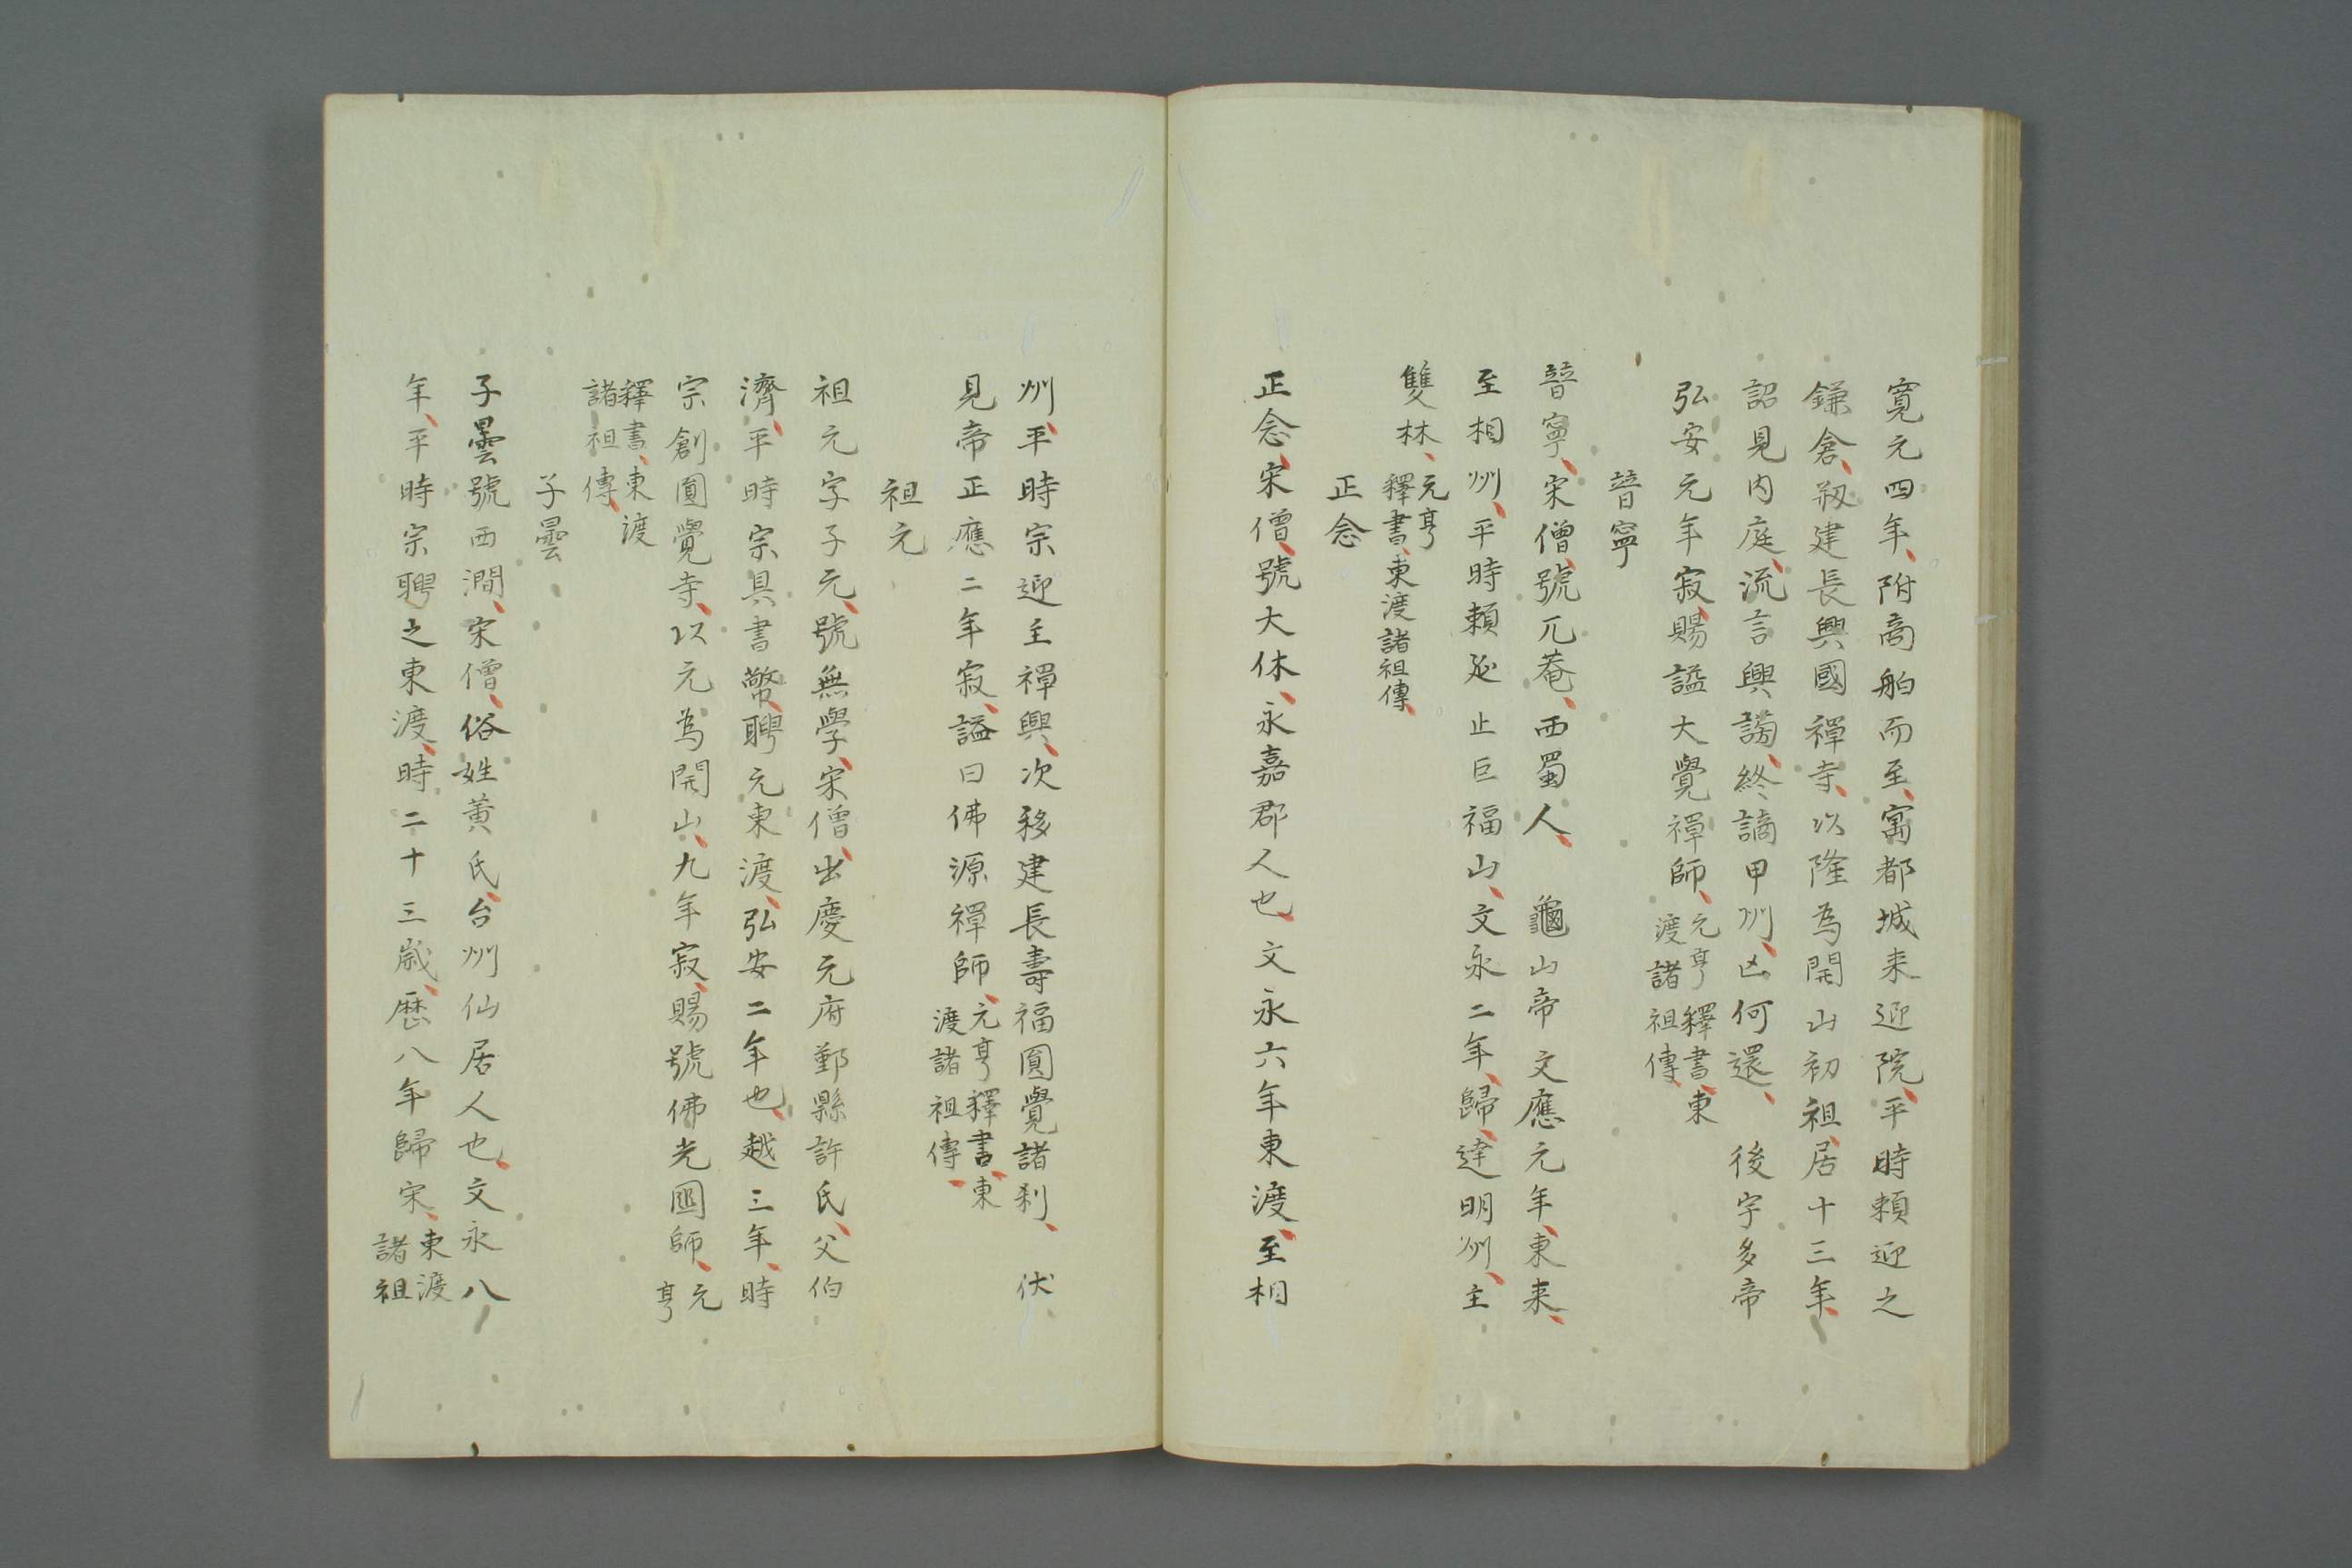 寛元四年、附商舶而至、寓都城来迎院、平時頼迎之
鎌倉、剏建長興國禪寺、以隆為開山初祖、居十三年、
詔見内庭、流言興謗、終謫甲州、凶何還、　後宇多帝
弘安元年寂、賜謚大覺禪師、元亨釋書、東
渡諸祖傳
普寧
普寧、宋僧、號兀菴、西蜀人、　龜山帝　文應元年、東来、
至相州、平時頼延止巨福山、文永二年、歸、達明州、主
雙林、元亨
釋書、東渡諸祖傳、
正念
正念、宋僧、號大休、永嘉郡人也、文永六年東渡、至相
州、平時宗迎主禪興、次移建長壽福圓覺諸刹、　伏
見帝正應二年寂、謚曰佛源禪師、元亨釋書、東
渡諸祖傳、
祖元
祖元字子元、號無學、宋僧、出慶元府鄞縣許氏、父伯
濟、平時宗具書幣、聘元東渡、弘安二年也、越三年、時
宗創圓覺寺、以元為開山、九年寂、賜號佛光國師、元
亨
釋書、東渡
諸祖傳、
子曇
子曇號西澗、宋僧、俗姓黄氏、台州仙居人也、文永八
年、平時宗聘之東渡、時二十三歳、歴八年歸宋、東渡
諸祖